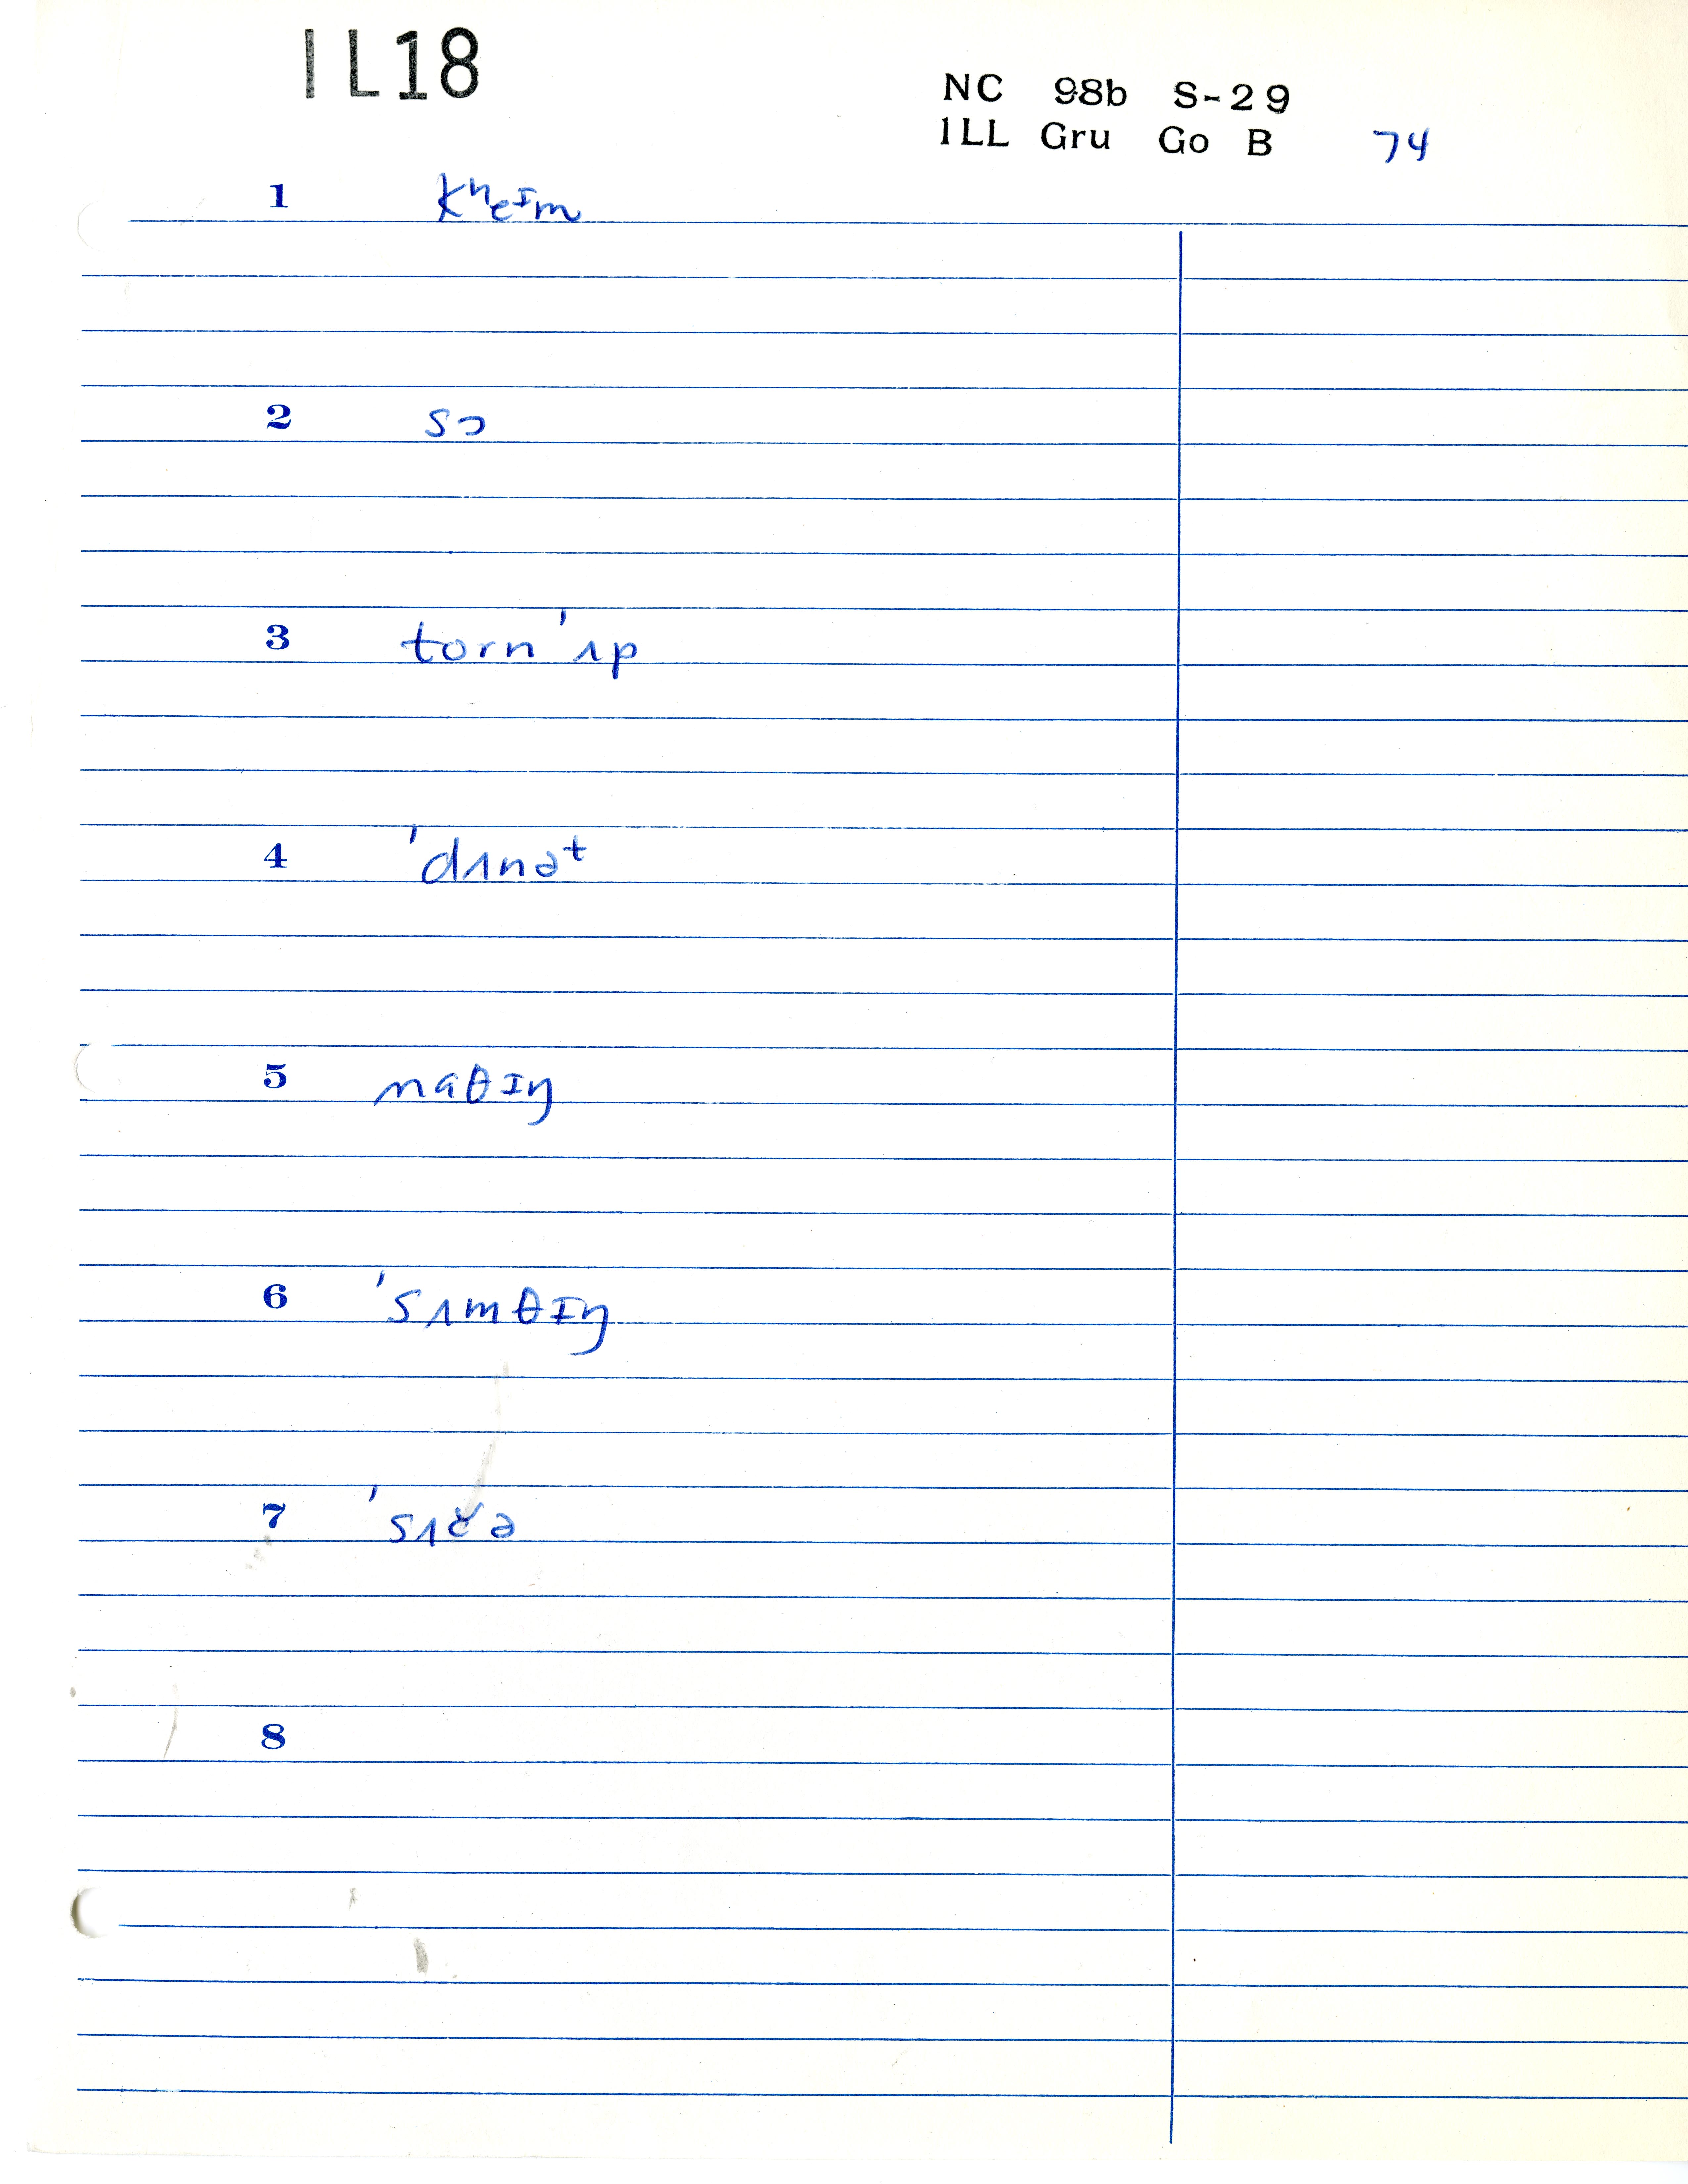 IL18
NC 98b S-29
ILL Gru Go B 74
1 kʰeɪm
2 sɔ
3 torn ˈʌp
4 ˈdʌnət
5 naθɪŋ
6 ˈsʌmθɪŋ
7 ˈsʌč ə
8